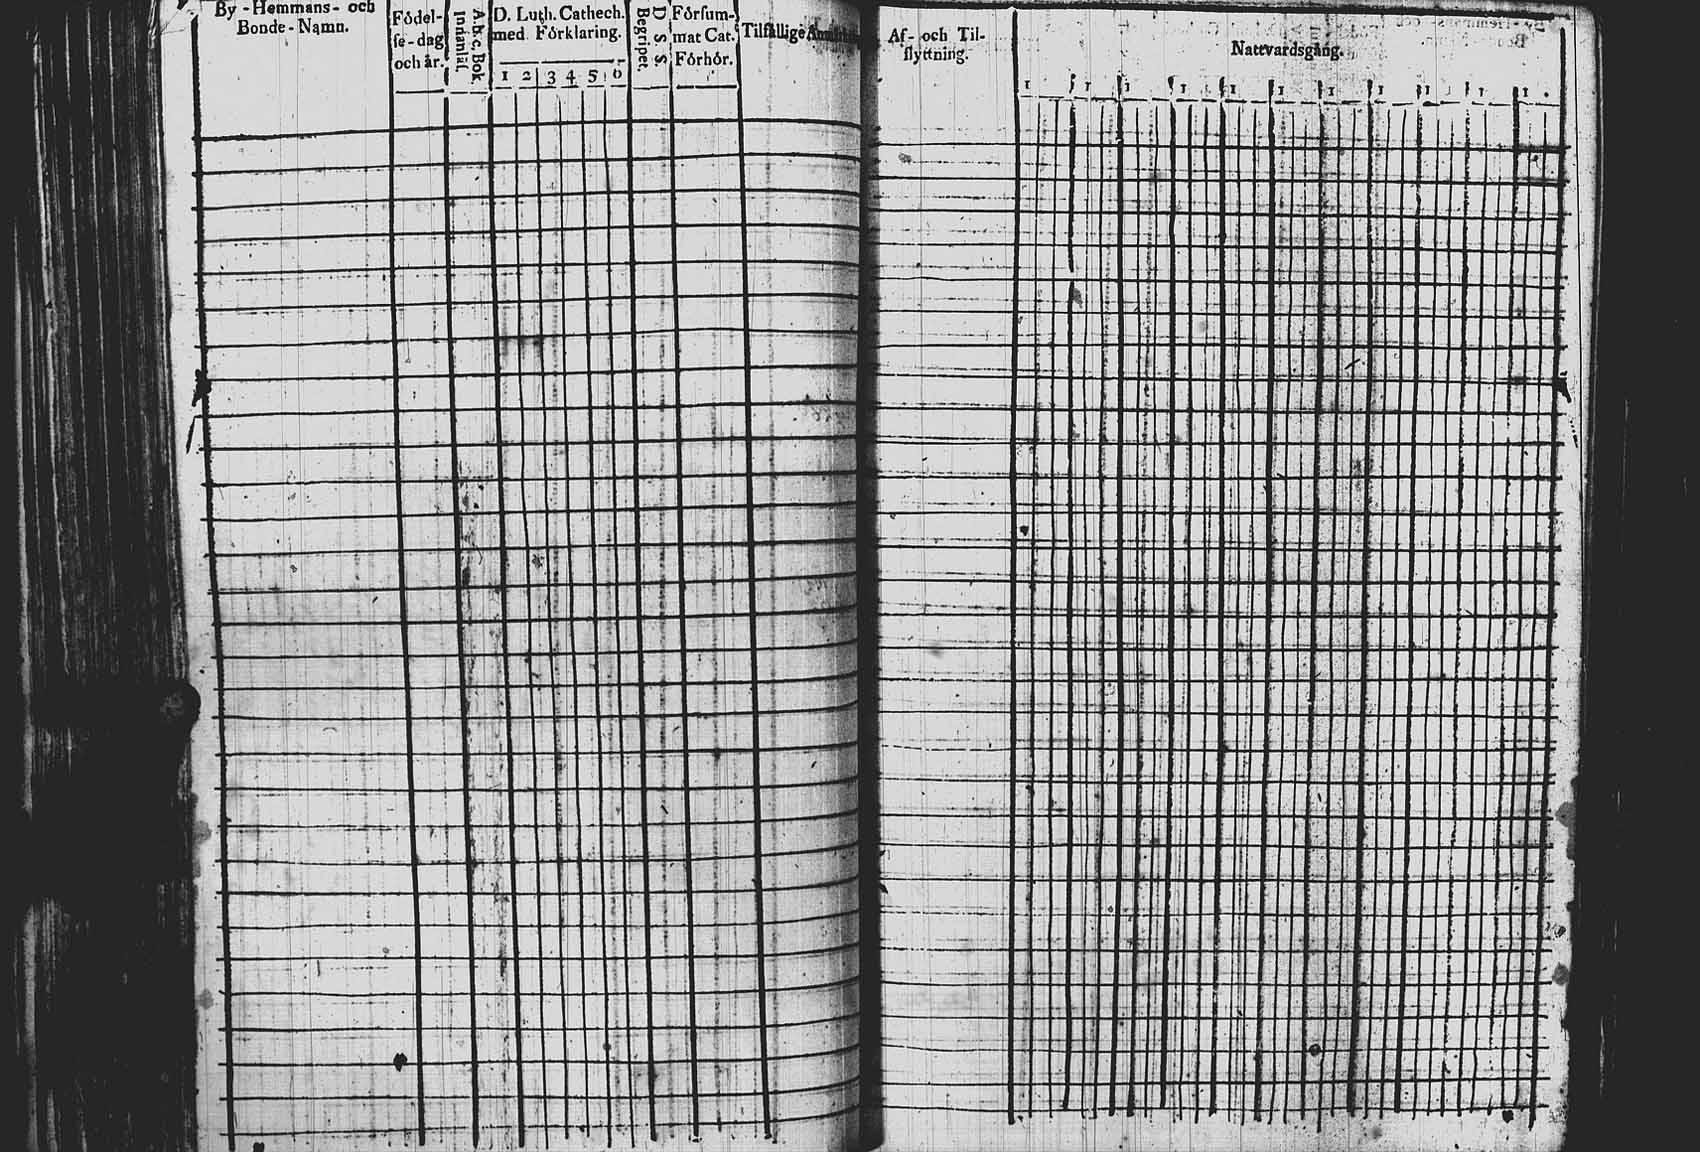 By - Hemmans - och
Bonde - Namn.
Födel-
se-dag
och år.
A.b.c. Bok
Innanläs.
D. Luth. Cathech.
med Förklaring.
1 2 3 4 5 6
D. S. S.
Begripet.
Försum-
mat Cat.
Förhör.
Tilfällige
Af- och Til-
flyttning.
Nattvardsgång.
1 1 1 1 1 1 1 1 1 1 1